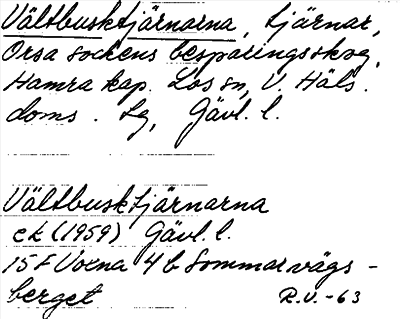 Vältbusktjärnarna, tjärnar,
Orsa sockens besparingsskog,
Hamra kap. Los sn, V. Häls.
doms. Lg, Gävl. l.
Vältbusktjärnarna
ek (1959) Gävl. l.
15 F Voxna 4 b Sommarvägs-
berget R.V.-63